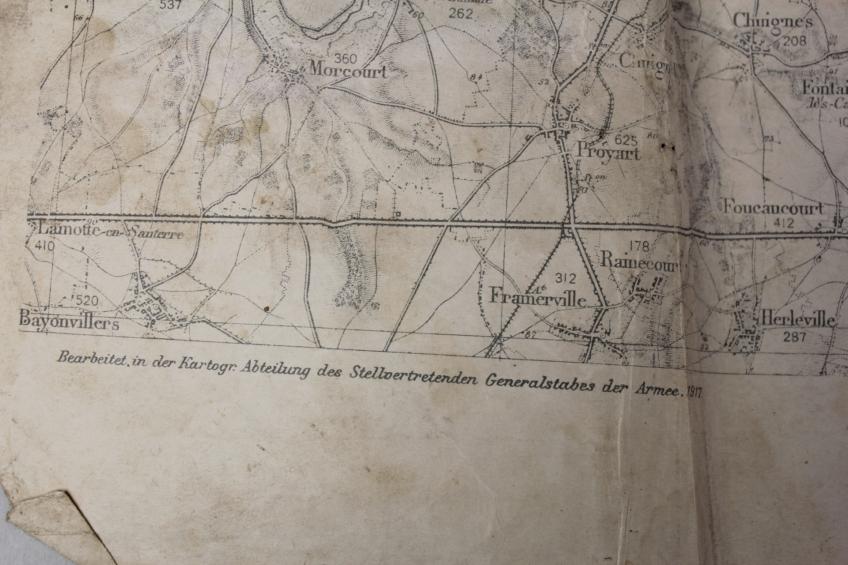 537
262
Chuignes
208
360
Morcourt
84
Fontai
625
Proyart
Foucaucourt
412
Lamotte-en-Santerre
410
178
Rainecour
312
Framerville
520
Bayonvillers
Herleville
287
87
Bearbeitet in der Kartogr. Abteilung des Stellvertretenden Generalstabes der Armee. 1917